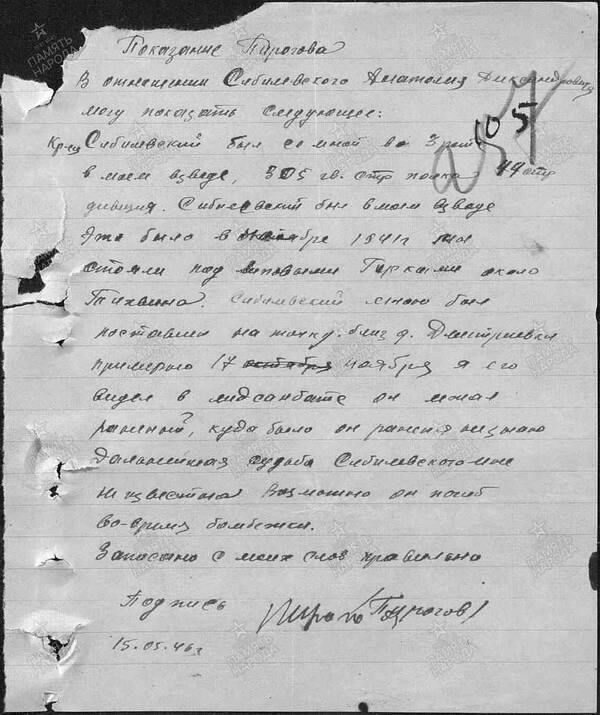 Показание Пирогова
В отношении Сибилевского Анатолия Александровича
могу показать следующее:
Кр-ец Сибилевский был со мной во 3 роте
в моем взводе, 305 гв. стр полка 44 стр
дивизия. Сибилевский был в моем взводе
Это было в ноябре 1941 г мы
стояли под Липовыми Горками около
Тихвина. Сибилевский мною был
поставлен на точку. близ д. Дмитриевки
примерно 17 октября ноября я его
видел в медсанбате он лежал
раненый, куда было он ранен я не знаю
Дальнейшая судьба Сибилевского мне
не известна возможно он погиб
во-время бомбежки.
Записано с моих слов правильно
Подпись Пирогов
15.05.46 г